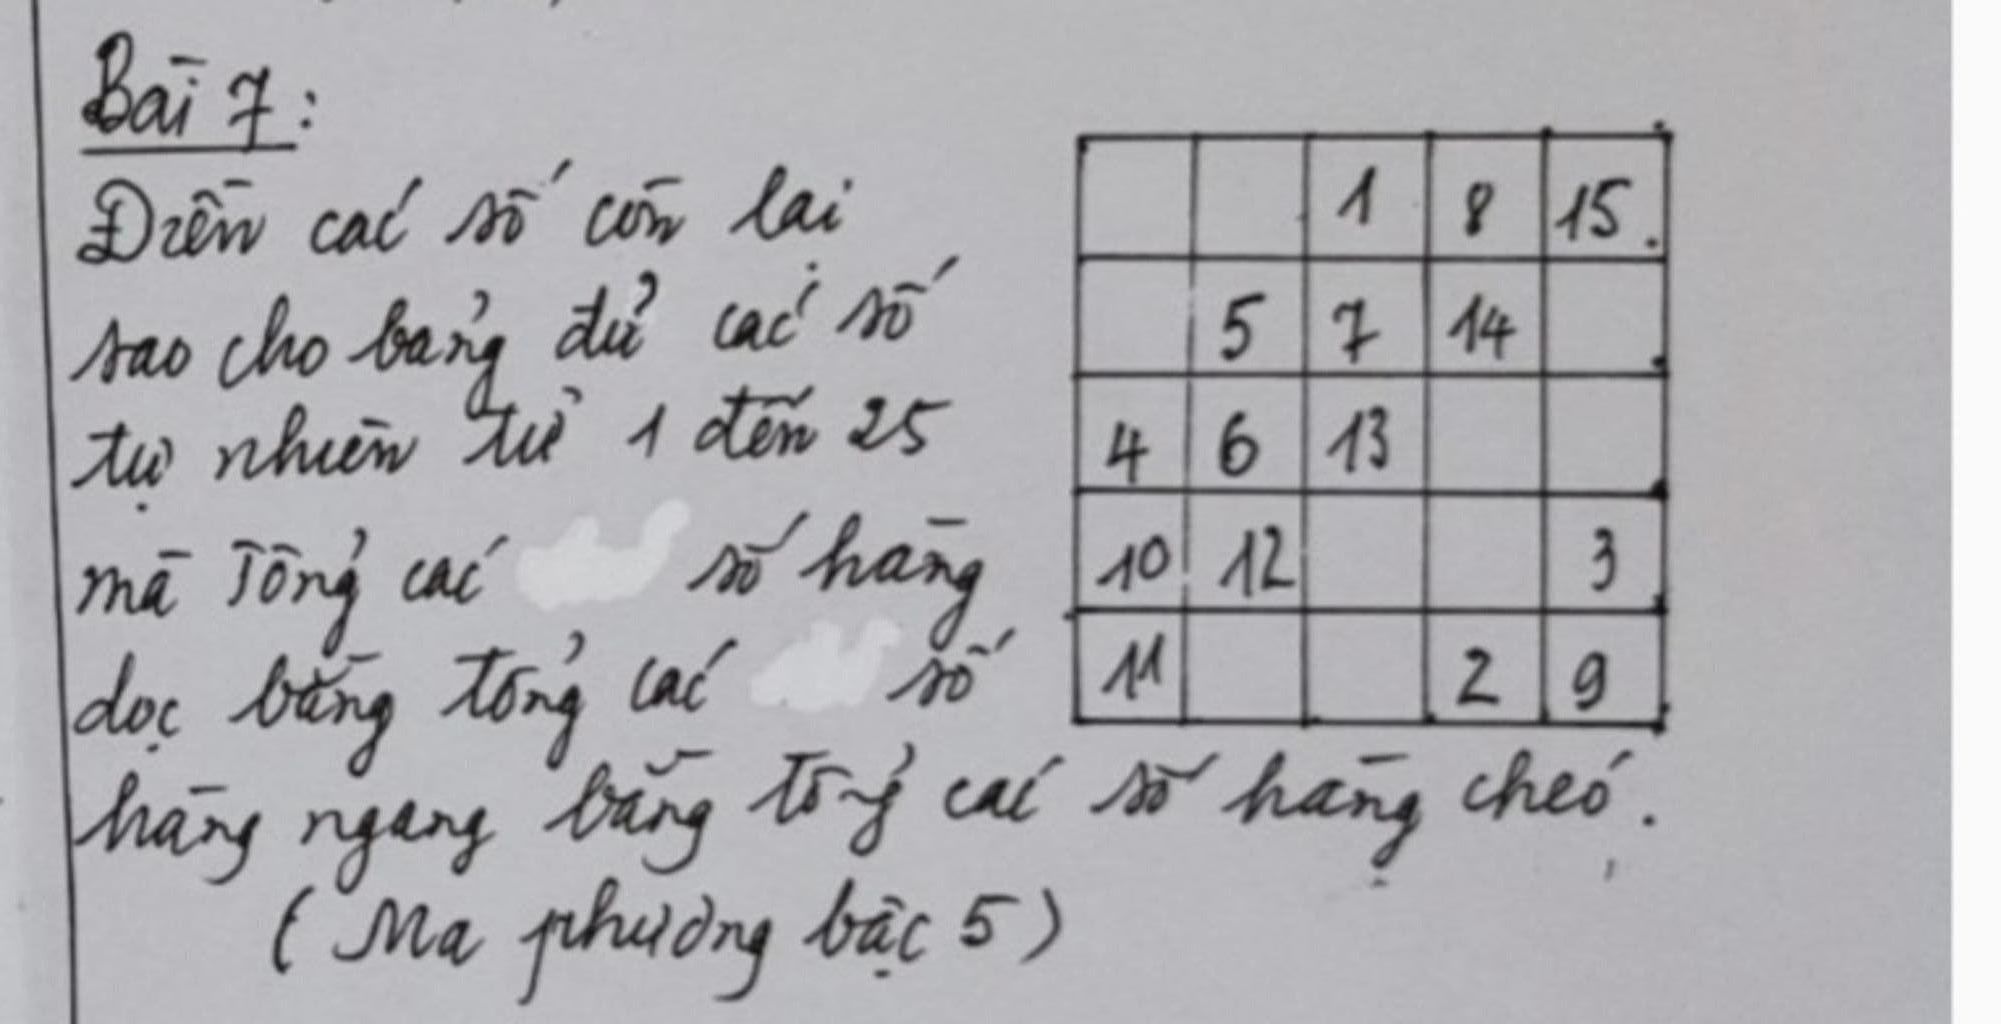 Bài 7:
Điền các số còn lại
sao cho bảng đủ các số
tự nhiên từ 1 đến 25
mà Tổng các số hàng
dọc bằng tổng các số
hàng ngang bằng tổng các số hàng chéo.
(Ma phương bậc 5)
1 8 15
5 7 14
4 6 13
10 12 3
11 2 9